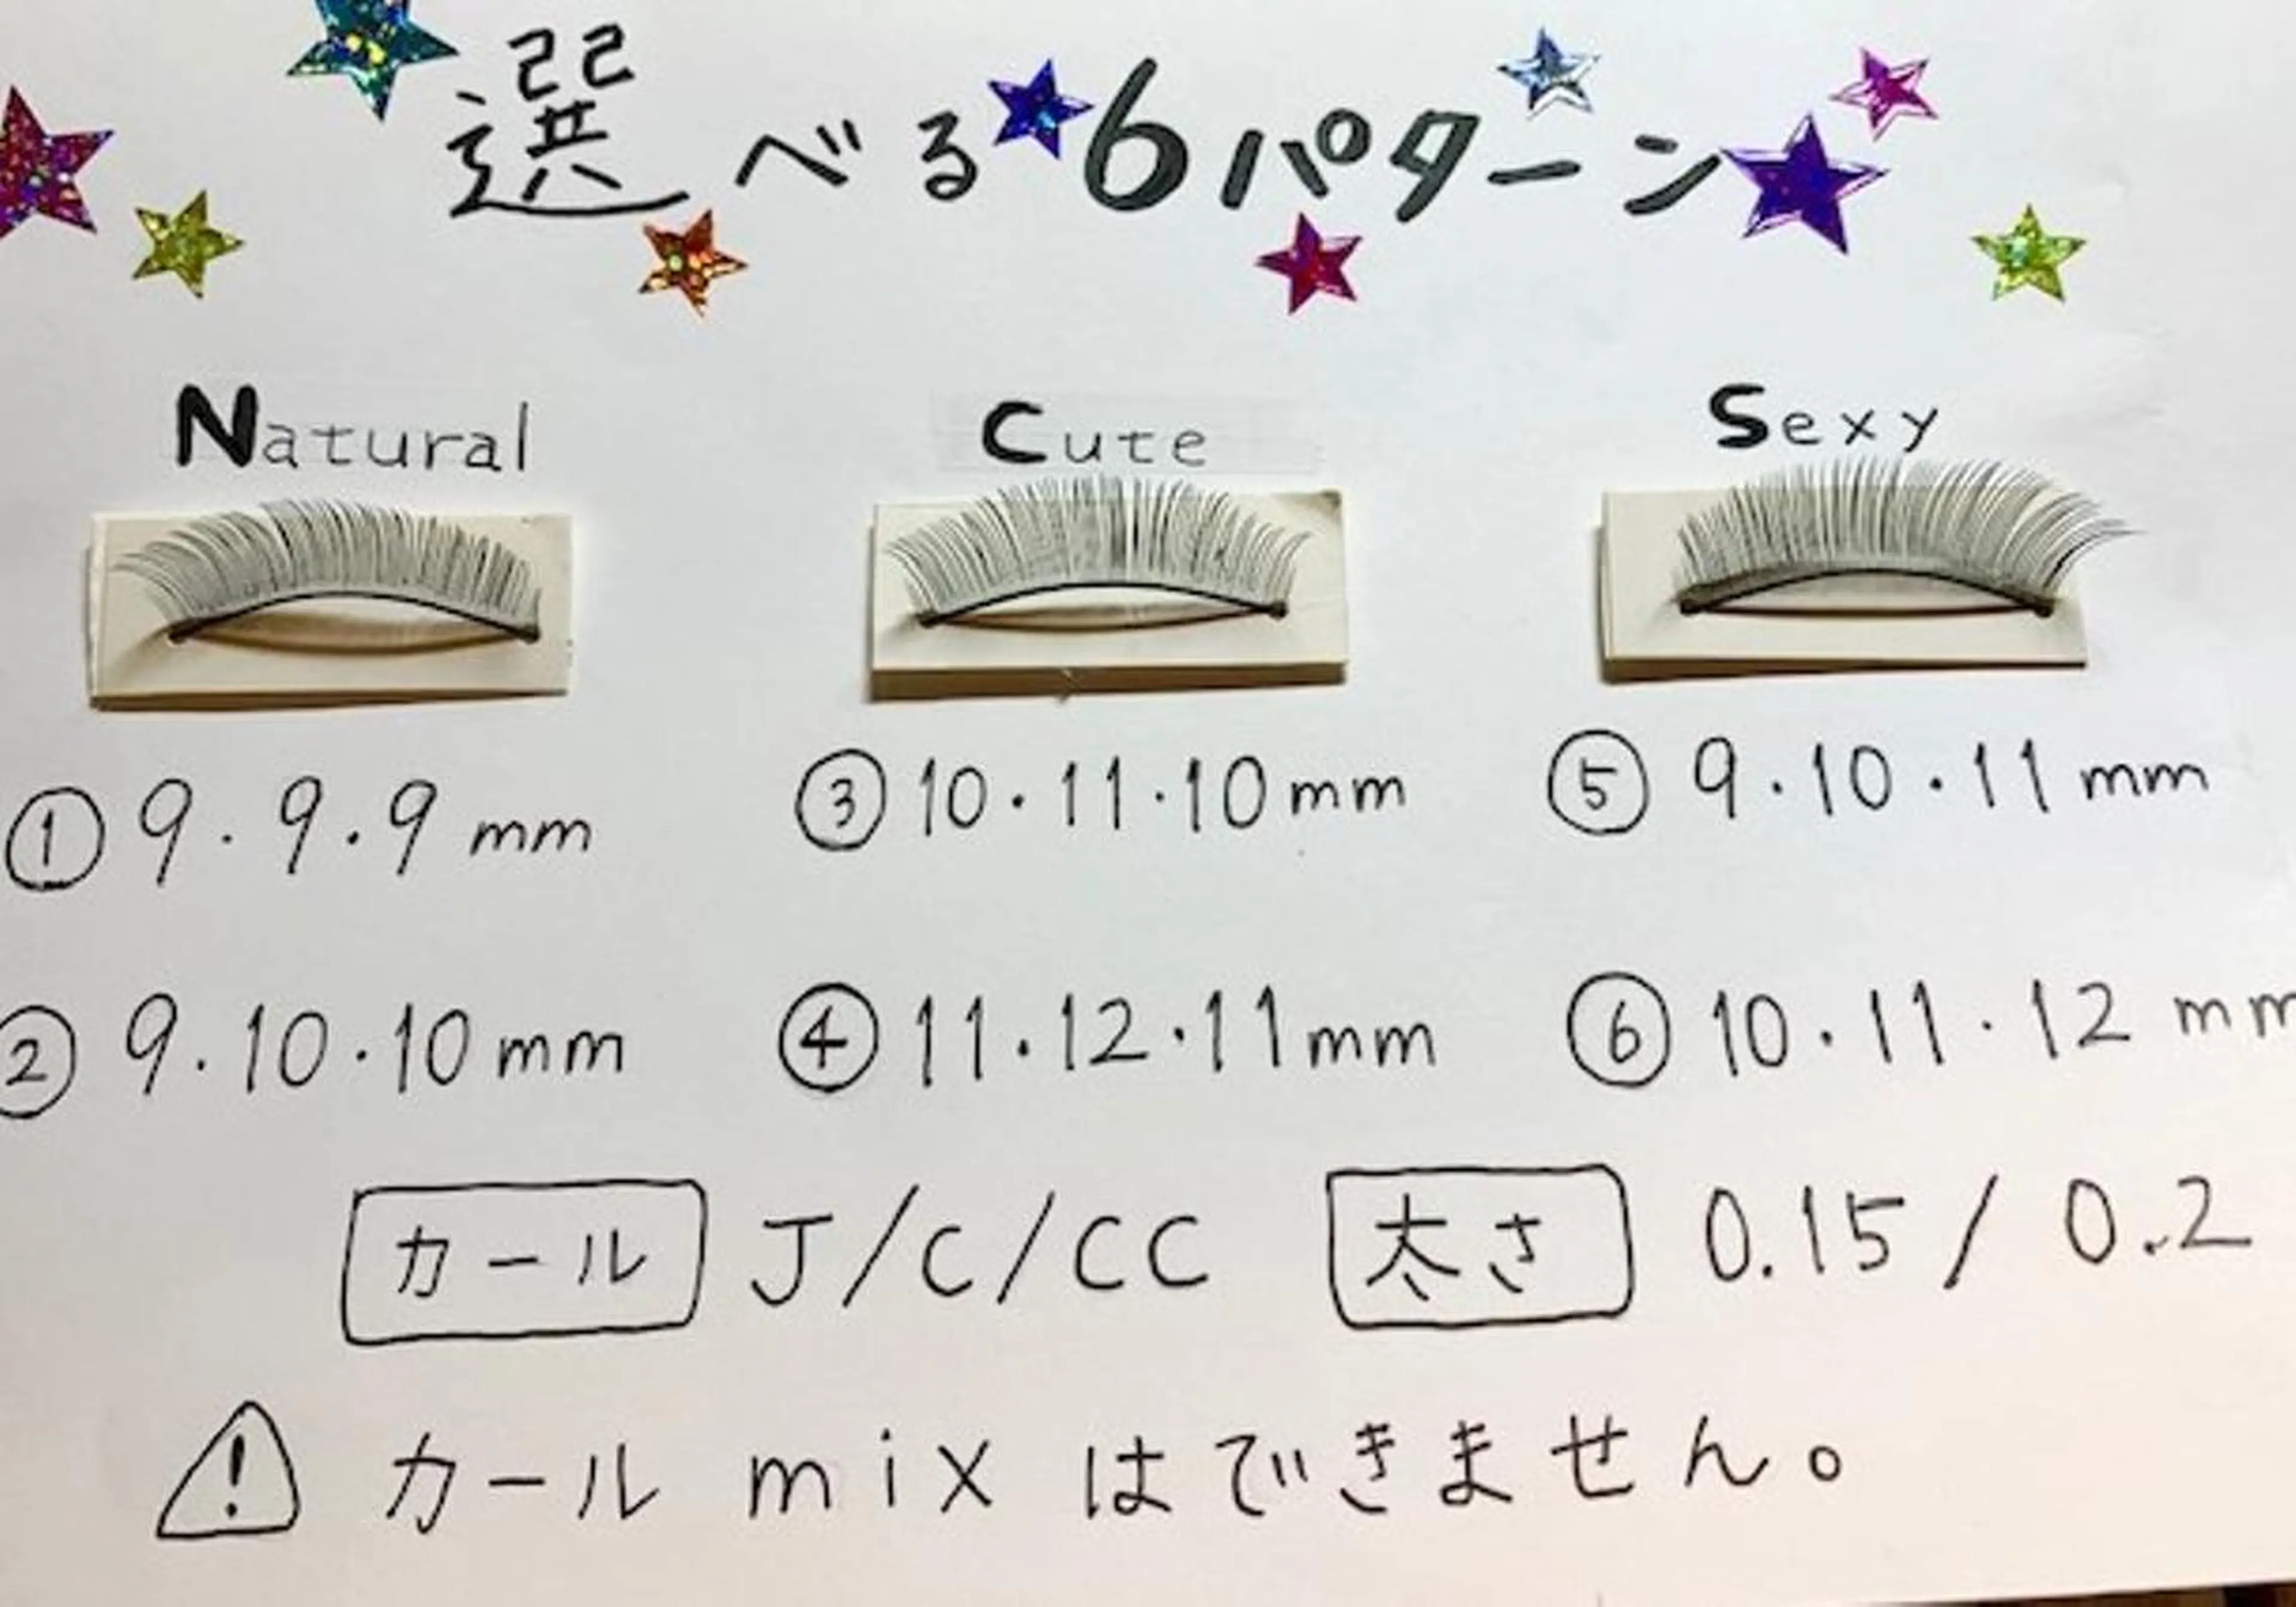 選べる6パターン
Natural Cute Sexy
① 9・9・9mm ③ 10・11・10mm ⑤ 9・10・11mm
② 9・10・10mm ④ 11・12・11mm ⑥ 10・11・12mm
カール J/C/CC 太さ 0.15/0.2
! カールmixはできません。